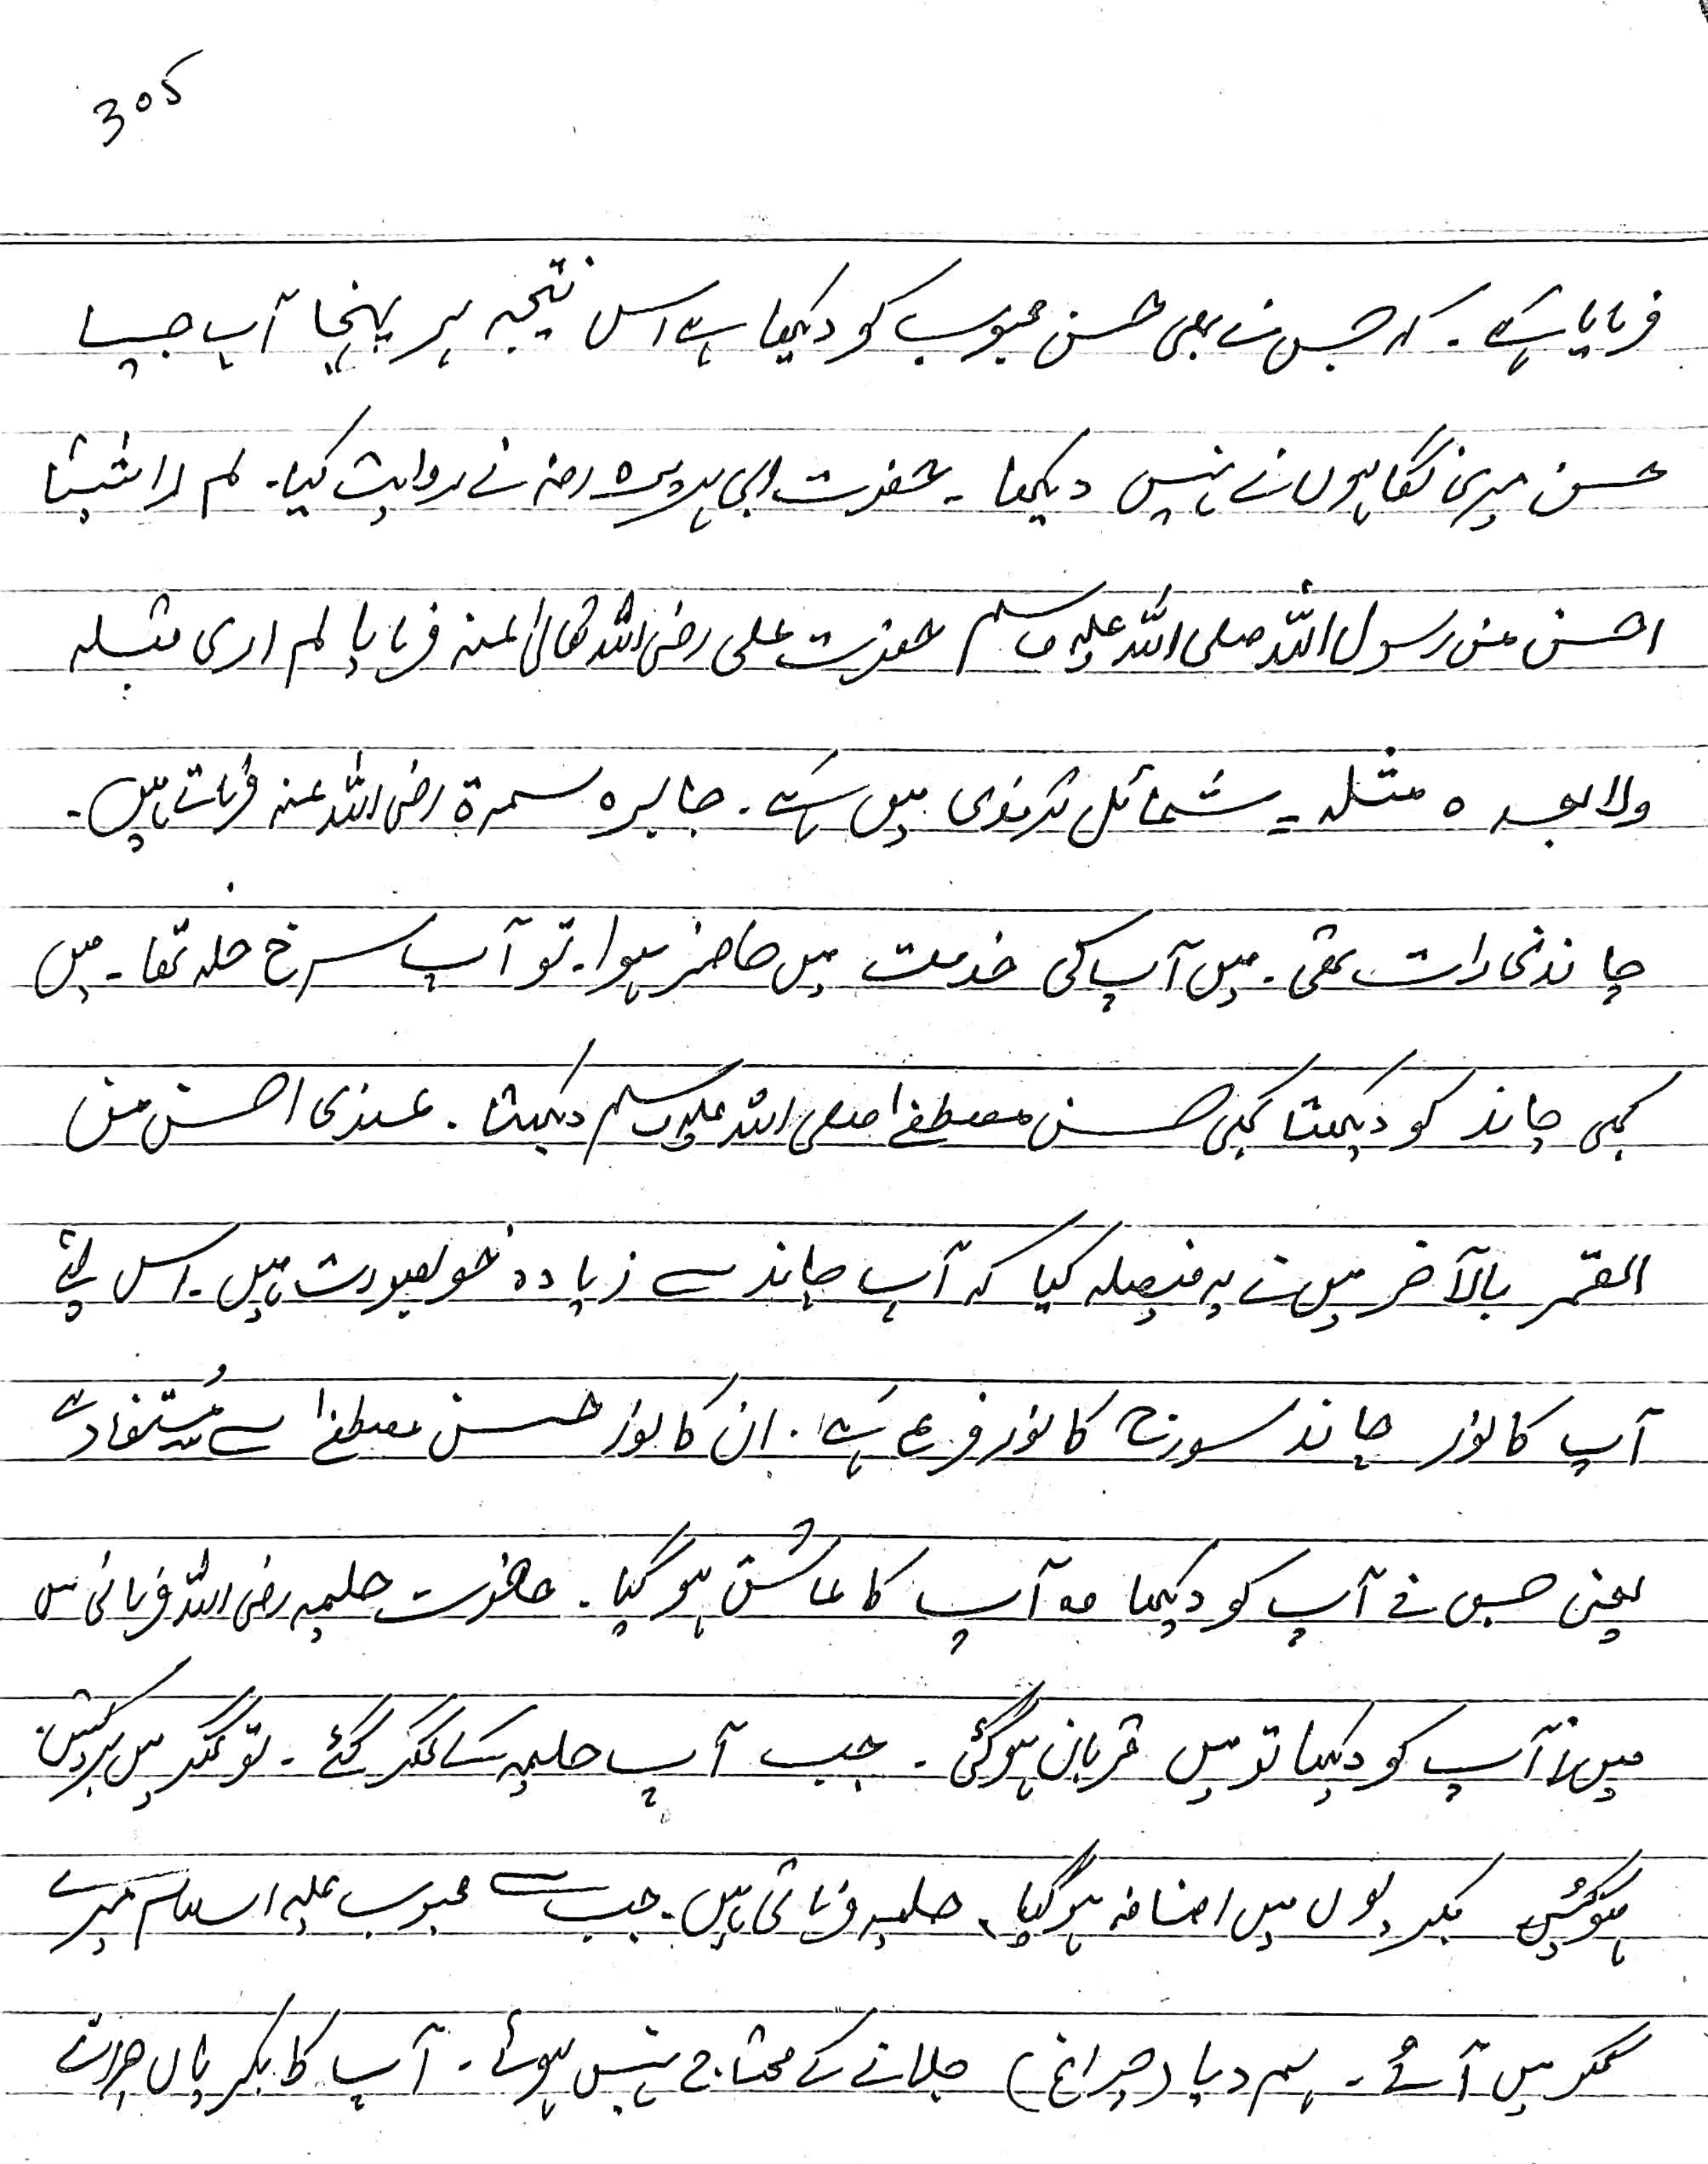 305
فرمایا ہے۔ کہ جس نے بھی حسن محبوب کو دیکھا ہے اس نتیجہ پر پہنچا آپ جیسا
حسن میری نگاہوں نے نہیں دیکھا۔ حضرت ابی ہریرہ رضہ نے روایت کیا۔ لم ارا شیئا
احسن من رسول اللہ صلی اللہ علیہ وسلم حضرت علی رضی اللہ تعالیٰ عنہ فرمایا لم اری مثلہ
ولا بعدہ مثلہ۔ شمائل ترمذی میں ہے۔ جابرہ سمرۃ رضی اللہ عنہ فرماتے ہیں۔
چاندنی رات تھی۔ میں آپ کی خدمت میں حاضر ہوا۔ تو آپ سرخ حلہ تھا۔ میں
کبھی چاند کو دیکھتا کبھی حسن مصطفےٰ صلی اللہ علیہ وسلم دیکھتا۔ عندی احسن من
القمر بالآخر میں نے یہ فیصلہ کیا کہ آپ چاند سے زیادہ خوبصورت ہیں۔ اس لئے
آپ کا نور چاند سورج کا نور فرع ہے۔ ان کا نور حسن مصطفےٰ سے مُستفاد ہے
یعنی جس نے آپ کو دیکھا وہ آپ کا عاشق ہو گیا۔ حضرت حلیمہ رضی اللہ فرماتی ہیں
میں نے آپ کو دیکھا تو میں قربان ہو گئی۔ جب آپ حلیمہ کے گھر گئے۔ تو گھر میں برکتیں
ہو گئیں بکریوں میں اضافہ ہو گیا۔ حلیمہ فرماتی ہیں۔ جب سے محبوب علیہ اسلام میرے
گھر میں آئے۔ ہم دیا (چراغ) جلانے کے محتاج نہیں ہوئے۔ آپ کا بکریاں چرانے